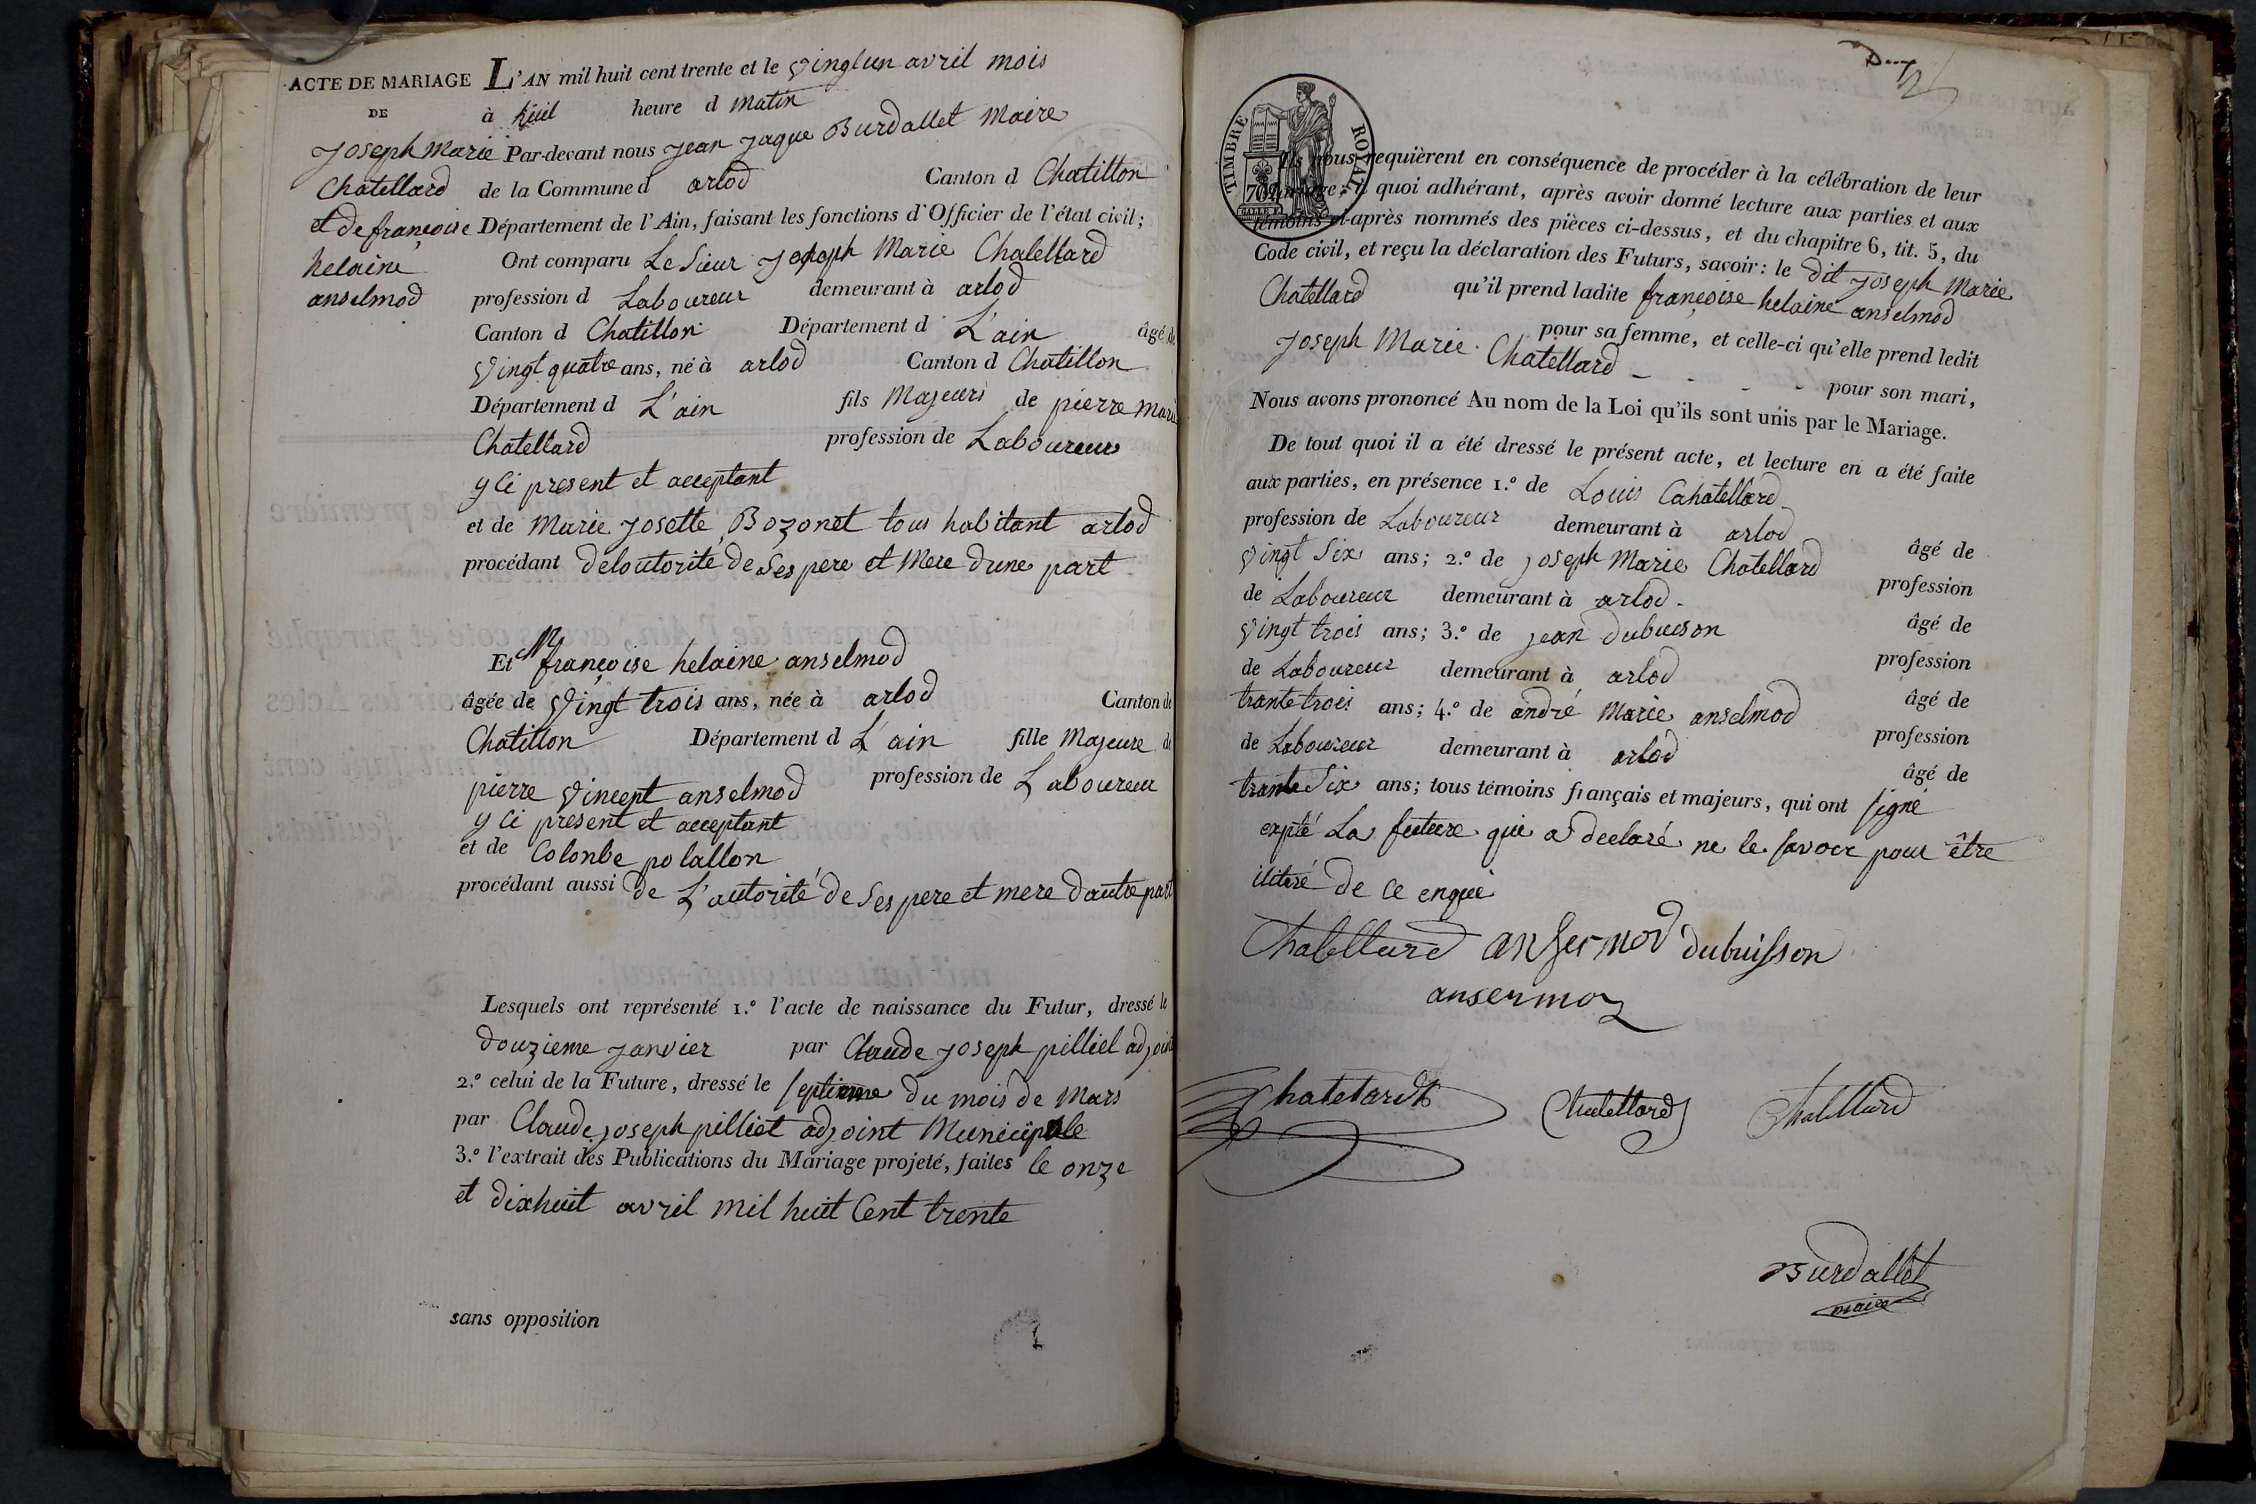 ACTE DE MARIAGE L'AN mil huit cent trente et le vinglun avril mois
DE à huil heure d matin
Joseph Marie Par-devant nous jean jaque Burdallet Maire
Chatellard de la Commune d arlod Canton d Chatillon
et de françoise Département de l'Ain, faisant les fonctions d'Officier de l'état civil;
helaine Ont comparu Le Sieur joseph Marie Chatellard
anselmod profession d Laboureur demeurant à arlod
Canton d Chatillon Département d L'ain âgé de
vingt quatre ans, né à arlod Canton d Chatillon
Département d L'ain fils Majeurs de pierre marie
Chatellard profession de Laboureur
y Ci present et acceptant
et de Marie Josette Bozonet tous habitant arlod
procédant deloutorité de Ses pere et Mere dune part
Et françoise helaine anselmod
âgée de vingt trois ans, née à arlod Canton de
Chatillon Département d L'ain fille Majeure de
pierre vincept anselmod profession de Laboureur
y Ci present et acceptant
et de Colonbe polallon
procédant aussi de L'autorité de Ses pere et mere dautre part
Lesquels ont représenté 1.º l'acte de naissance du Futur, dressé le
douzieme janvier par Claude joseph pilliet adjoint
2.º celui de la Future, dressé le septieme du mois de Mars
par Claude joseph pilliet adjoint Municipale
3.º l'extrait des Publications du Mariage projeté, faites le onze
et dixhuit avril mil huit Cent trente
sans opposition
TIMBRE ROYAL
Ils nous requièrent en conséquence de procéder à la célébration de leur
mariage; à quoi adhérant, après avoir donné lecture aux parties et aux
témoins ci-après nommés des pièces ci-dessus, et du chapitre 6, tit. 5, du
Code civil, et reçu la déclaration des Futurs, savoir: le dit joseph Marie
Chatellard qu'il prend ladite françoise helaine anselmod
pour sa femme, et celle-ci qu'elle prend ledit
Joseph Marie Chatellard - - - - pour son mari,
Nous avons prononcé Au nom de la Loi qu'ils sont unis par le Mariage.
De tout quoi il a été dressé le présent acte, et lecture en a été faite
aux parties, en présence 1.º de Louis Cahatellard
profession de Laboureur demeurant à arlod âgé de
vingt Six ans; 2.º de joseph Marie Chatellard profession
de Laboureur demeurant à arlod. âgé de
vingt trois ans; 3.º de jean dubuison profession
de Laboureur demeurant à arlod âgé de
trante trois ans; 4.º de andré Marie anselmod profession
de Laboureur demeurant à arlod âgé de
trante Six ans; tous témoins français et majeurs, qui ont signé
expté La future qui a declaré ne le savoir pour être
ilitéré de ce enquis
Chatellard ansermod dubuisson
ansermoz
Chatelard Chatellard Chatellard
Burdallet
maire